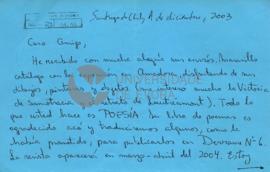 Santiago de Chile, 1 de diciembre, 2003
Caro Amigo,
He recibido con mucha alegría sus envíos, maravillo
catálogo con la Amadora, disfrutando de sus
dibujos, pinturas y objetos (me interesó mucho la Victoria
de Samotracia retrato de Lautréamont). Todo lo
que usted hace es POESIA. Su libro de poemas es
agradecido acá y traduciremos algunos, como le
había prometido, para publicarlos en Derrame Nº 6.
La revista aparecerá en marzo-abril del 2004. Estoy
UNIVERSIDADE
DE ÉVORA